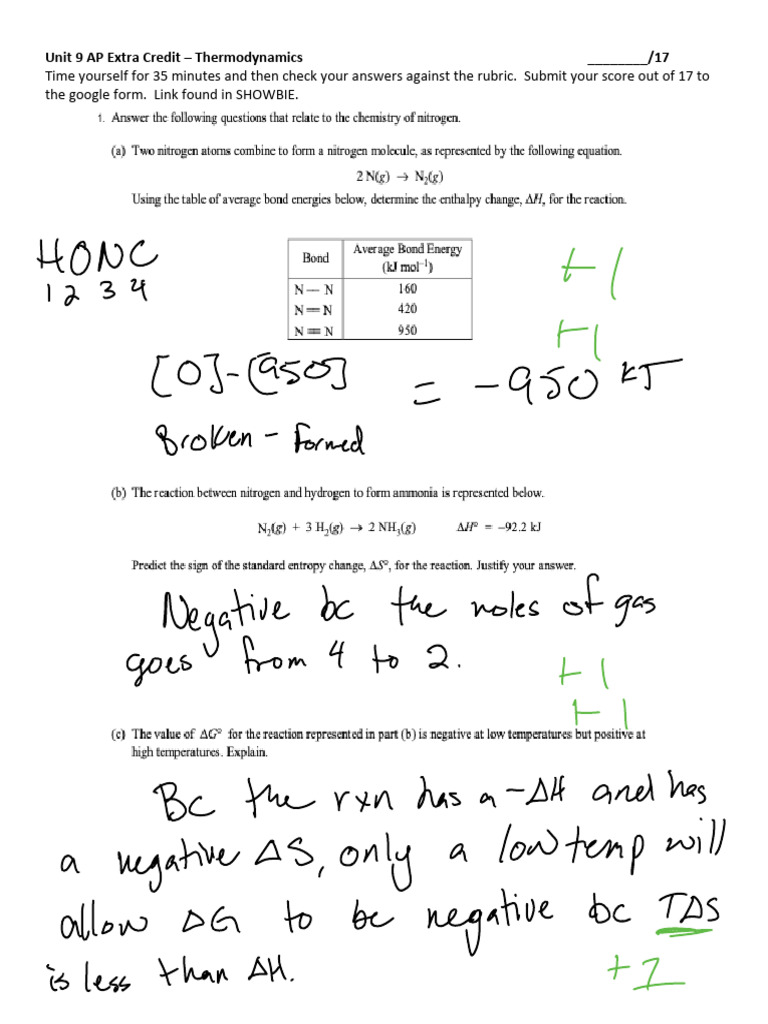 Unit 9 AP Extra Credit – Thermodynamics ________/17
Time yourself for 35 minutes and then check your answers against the rubric. Submit your score out of 17 to
the google form. Link found in SHOWBIE.
1. Answer the following questions that relate to the chemistry of nitrogen.
(a) Two nitrogen atoms combine to form a nitrogen molecule, as represented by the following equation.
2 N(g) → N₂(g)
Using the table of average bond energies below, determine the enthalpy change, ΔH, for the reaction.
HONC
1 2 3 4
Bond Average Bond Energy (kJ mol⁻¹)
N — N 160
N = N 420
N ≡ N 950
+1
+1
[0]-[950] = -950 kJ
Broken - Formed
(b) The reaction between nitrogen and hydrogen to form ammonia is represented below.
N₂(g) + 3 H₂(g) → 2 NH₃(g) ΔH° = –92.2 kJ
Predict the sign of the standard entropy change, ΔS°, for the reaction. Justify your answer.
Negative bc the moles of gas
goes from 4 to 2.
+1
+1
(c) The value of ΔG° for the reaction represented in part (b) is negative at low temperatures but positive at
high temperatures. Explain.
Bc the rxn has a -ΔH and has
a negative ΔS, only a low temp will
allow ΔG to be negative bc TΔS
is less than ΔH.
+1